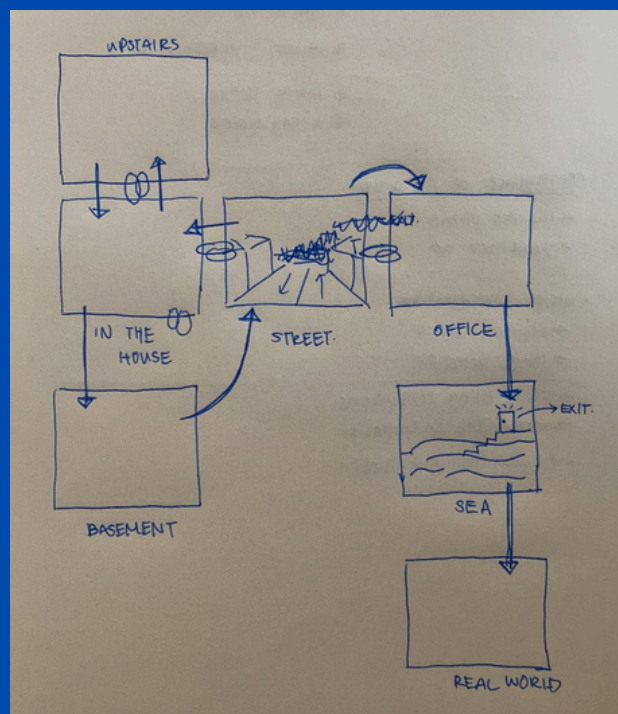 UPSTAIRS
IN THE
HOUSE
STREET.
OFFICE
EXIT.
BASEMENT
SEA
REAL WORLD